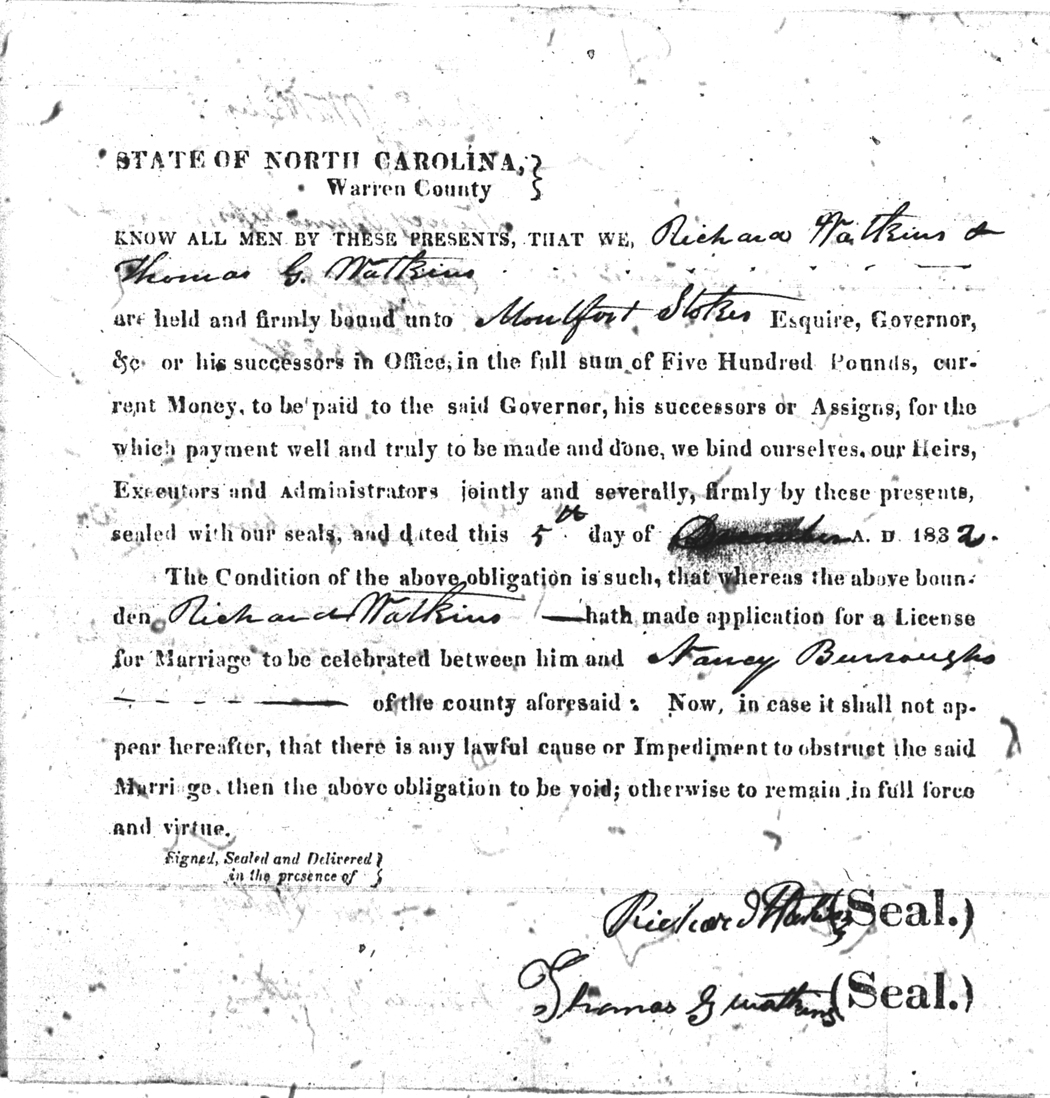 STATE OF NORTH CAROLINA,
Warren County
KNOW ALL MEN BY THESE PRESENTS, THAT WE, Richard Watkins &
Thomas G. Watkins
are held and firmly bound unto Montfort Stokes Esquire, Governor,
&c or his successors in Office, in the full sum of Five Hundred Pounds, cur-
rent Money, to be paid to the said Governor, his successors or Assigns, for the
which payment well and truly to be made and done, we bind ourselves, our Heirs,
Executors and Administrators jointly and severally, firmly by these presents,
sealed with our seals, and dated this 5th day of December A. D. 1832.
The Condition of the above obligation is such, that whereas the above boun-
den Richard Watkins hath made application for a License
for Marriage to be celebrated between him and Nancy Burroughs
of the county aforesaid: Now, in case it shall not ap-
pear hereafter, that there is any lawful cause or Impediment to obstruct the said
Marriage, then the above obligation to be void; otherwise to remain in full force
and virtue.
Signed, Sealed and Delivered
in the presence of
Richard Watkins (Seal.)
Thomas G Watkins (Seal.)